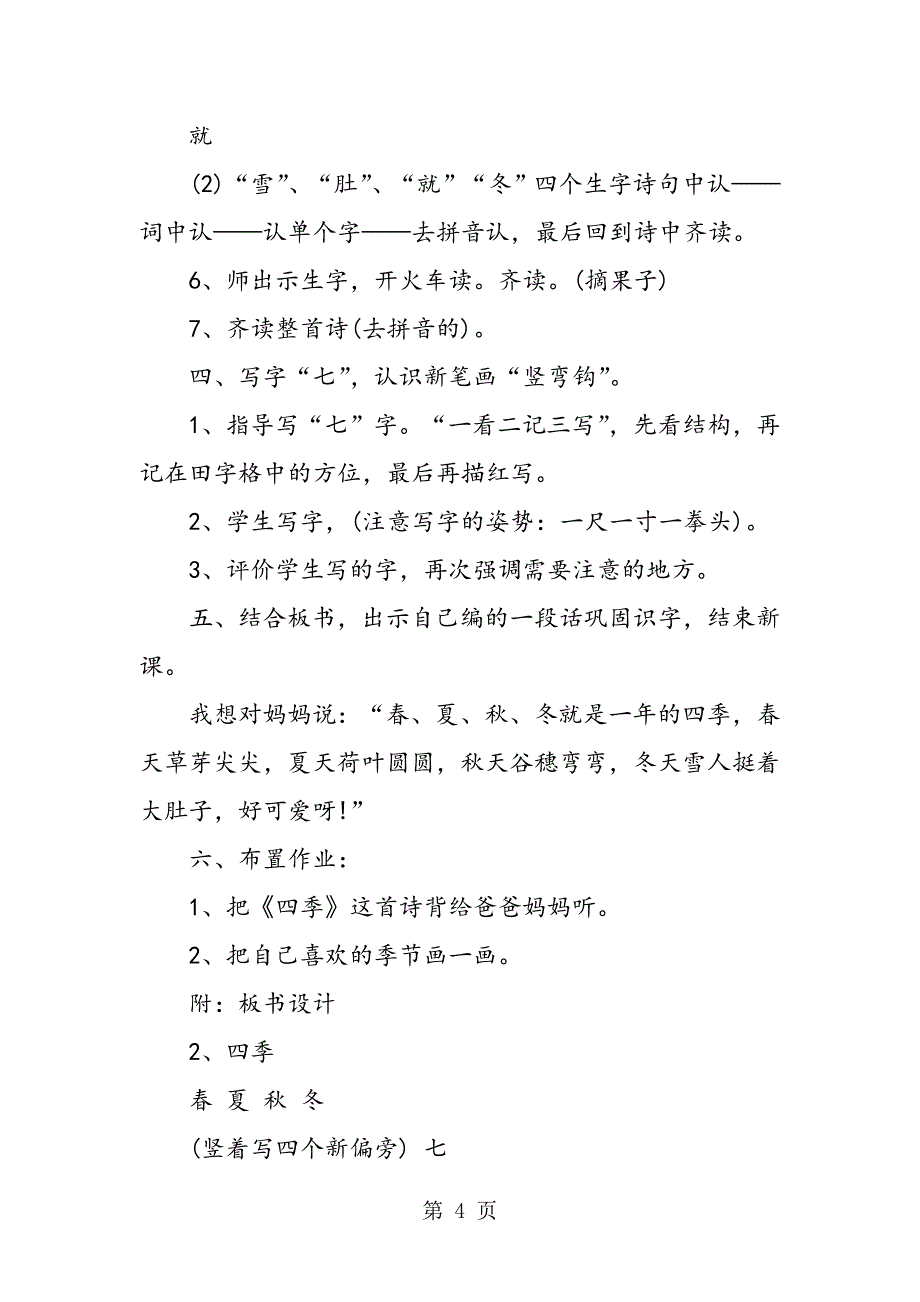 就
(2)“雪”、“肚”、“就”“冬”四个生字诗句中认——
词中认——认单个字——去拼音认，最后回到诗中齐读。
6、师出示生字，开火车读。齐读。(摘果子)
7、齐读整首诗(去拼音的)。
四、写字“七”，认识新笔画“竖弯钩”。
1、指导写“七”字。“一看二记三写”，先看结构，再
记在田字格中的方位，最后再描红写。
2、学生写字，(注意写字的姿势：一尺一寸一拳头)。
3、评价学生写的字，再次强调需要注意的地方。
五、结合板书，出示自己编的一段话巩固识字，结束新
课。
我想对妈妈说：“春、夏、秋、冬就是一年的四季，春
天草芽尖尖，夏天荷叶圆圆，秋天谷穗弯弯，冬天雪人挺着
大肚子，好可爱呀!”
六、布置作业：
1、把《四季》这首诗背给爸爸妈妈听。
2、把自己喜欢的季节画一画。
附：板书设计
2、四季
春 夏 秋 冬
(竖着写四个新偏旁) 七
第 4 页